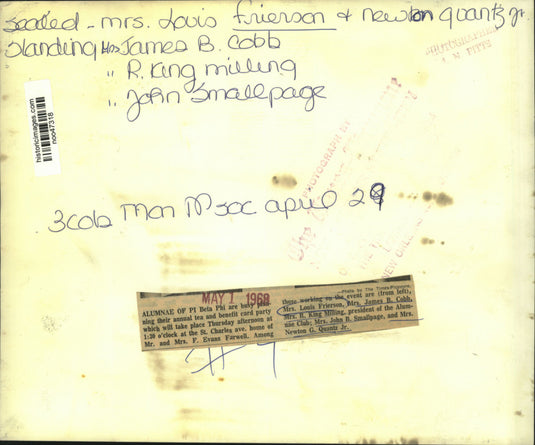 seated - mrs. Louis Frierson & newton quantz jr.
Standing Mrs James B. Cobb
" R. King milling
" John Smallpage
historicimages.com
noo47318
3cols Mon TP soc april 29
PHOTOGRAPH BY
MAY 1 1968
—Photo by The Times-Picayune.
ALUMNAE OF PI Beta Phi are busy plan-
ning their annual tea and benefit card party
which will take place Thursday afternoon at
1:30 o'clock at the St. Charles ave. home of
Mr. and Mrs. F. Evans Farwell. Among
those working on the event are (from left),
Mrs. Louis Frierson, Mrs. James B. Cobb,
Mrs. R. King Milling, president of the Alum-
nae Club; Mrs. John B. Smallpage, and Mrs.
Newton G. Quantz Jr.